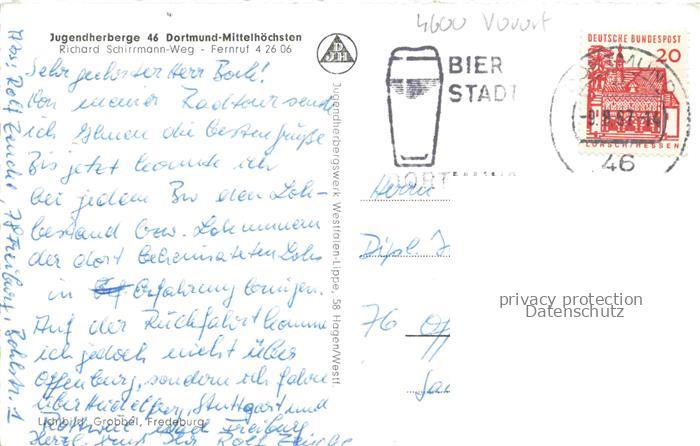 Jugendherberge 46 Dortmund-Mittelhöchsten
Richard Schirrmann-Weg - Fernruf 4 26 06
DJH
4600 Vorort
BIER
STADT
DEUTSCHE BUNDESPOST
20
LORSCH/HESSEN
46
Sehr geehrter Herr Bock!
Von meiner Radtour sende
ich Ihnen die besten Grüße
Bis jetzt konnte ich
bei jedem Bw den Lok-
bestand bzw. Loknummern
der dort beheimateten Loks
in Erfahrung bringen.
Auf der Rückfahrt komme
ich jedoch nicht über
Offenburg, sondern ich fahre
über Heidelberg, Stuttgart und
nach Freiburg
Herzl. Rolf
Abs; Rolf 78 Freiburg,
Jugendherbergswerk Westfalen-Lippe, 58 Hagen/Westf
Lichtbild Grobbel, Fredeburg
Herrn
Dipl. I
76 Off
privacy protection
Datenschutz